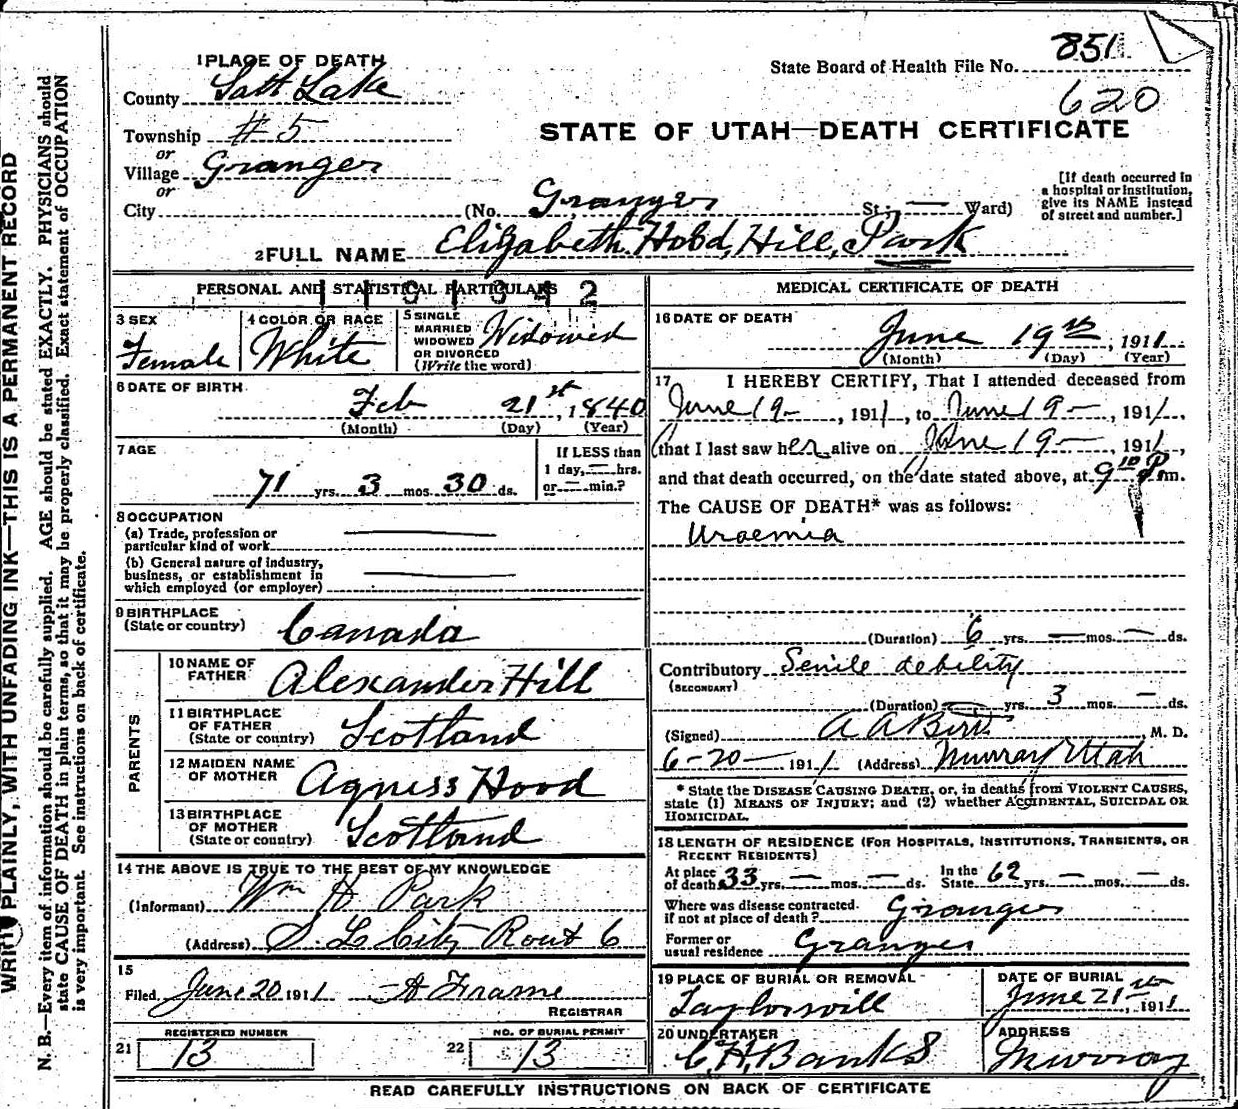 851
State Board of Health File No.
620
STATE OF UTAH—DEATH CERTIFICATE
1 PLACE OF DEATH
County Salt Lake
Township #5
or
Village Granger
or
City (No. Granger St; — Ward)
[If death occurred in
a hospital or institution,
give its NAME instead
of street and number.]
2 FULL NAME Elizabeth Hobd, Hill, Park
PERSONAL AND STATISTICAL PARTICULARS
3 SEX
Female
4 COLOR OR RACE
White
5 SINGLE
MARRIED
WIDOWED
OR DIVORCED
(Write the word)
Widowed
6 DATE OF BIRTH
Feb 21st, 1840
(Month) (Day) (Year)
7 AGE
71 yrs. 3 mos. 30 ds.
If LESS than
1 day, — hrs.
or — min.?
8 OCCUPATION
(a) Trade, profession or
particular kind of work
(b) General nature of industry,
business, or establishment in
which employed (or employer)
9 BIRTHPLACE
(State or country) Canada
PARENTS
10 NAME OF
FATHER Alexander Hill
11 BIRTHPLACE
OF FATHER
(State or country) Scotland
12 MAIDEN NAME
OF MOTHER Agness Hood
13 BIRTHPLACE
OF MOTHER
(State or country) Scotland
14 THE ABOVE IS TRUE TO THE BEST OF MY KNOWLEDGE
(Informant) Wm H Park
(Address) S. L. City Rout 6
15
Filed June 20 1911 A Frame
REGISTRAR
REGISTERED NUMBER
21 13
NO. OF BURIAL PERMIT
22 13
MEDICAL CERTIFICATE OF DEATH
16 DATE OF DEATH
June 19th, 1911
(Month) (Day) (Year)
17 I HEREBY CERTIFY, That I attended deceased from
June 19 —, 1911, to June 19 —, 1911,
that I last saw her alive on June 19 — 1911,
and that death occurred, on the date stated above, at 9 10 P m.
The CAUSE OF DEATH* was as follows:
Uraemia
(Duration) 6 yrs. — mos. — ds.
Contributory Senile debility
(SECONDARY)
(Duration) — yrs. 3 mos. — ds.
(Signed) A A Birt, M. D.
6-20- 1911 (Address) Murray Utah
* State the DISEASE CAUSING DEATH, or, in deaths from VIOLENT CAUSES,
state (1) MEANS OF INJURY; and (2) whether ACCIDENTAL, SUICIDAL OR
HOMICIDAL.
18 LENGTH OF RESIDENCE (FOR HOSPITALS, INSTITUTIONS, TRANSIENTS, OR
RECENT RESIDENTS)
At place of death 33 yrs. — mos. — ds. In the State 62 yrs. — mos. — ds.
Where was disease contracted.
if not at place of death? Granger
Former or
usual residence Granger
19 PLACE OF BURIAL OR REMOVAL
Taylorsvill
DATE OF BURIAL
June 21st, 1911
20 UNDERTAKER
C. H. Banks
ADDRESS
Murray
READ CAREFULLY INSTRUCTIONS ON BACK OF CERTIFICATE
WRITE PLAINLY, WITH UNFADING INK—THIS IS A PERMANENT RECORD
N. B.—Every item of information should be carefully supplied. AGE should be stated EXACTLY. PHYSICIANS should
state CAUSE OF DEATH in plain terms, so that it may be properly classified. Exact statement of OCCUPATION
is very important. See instructions on back of certificate.